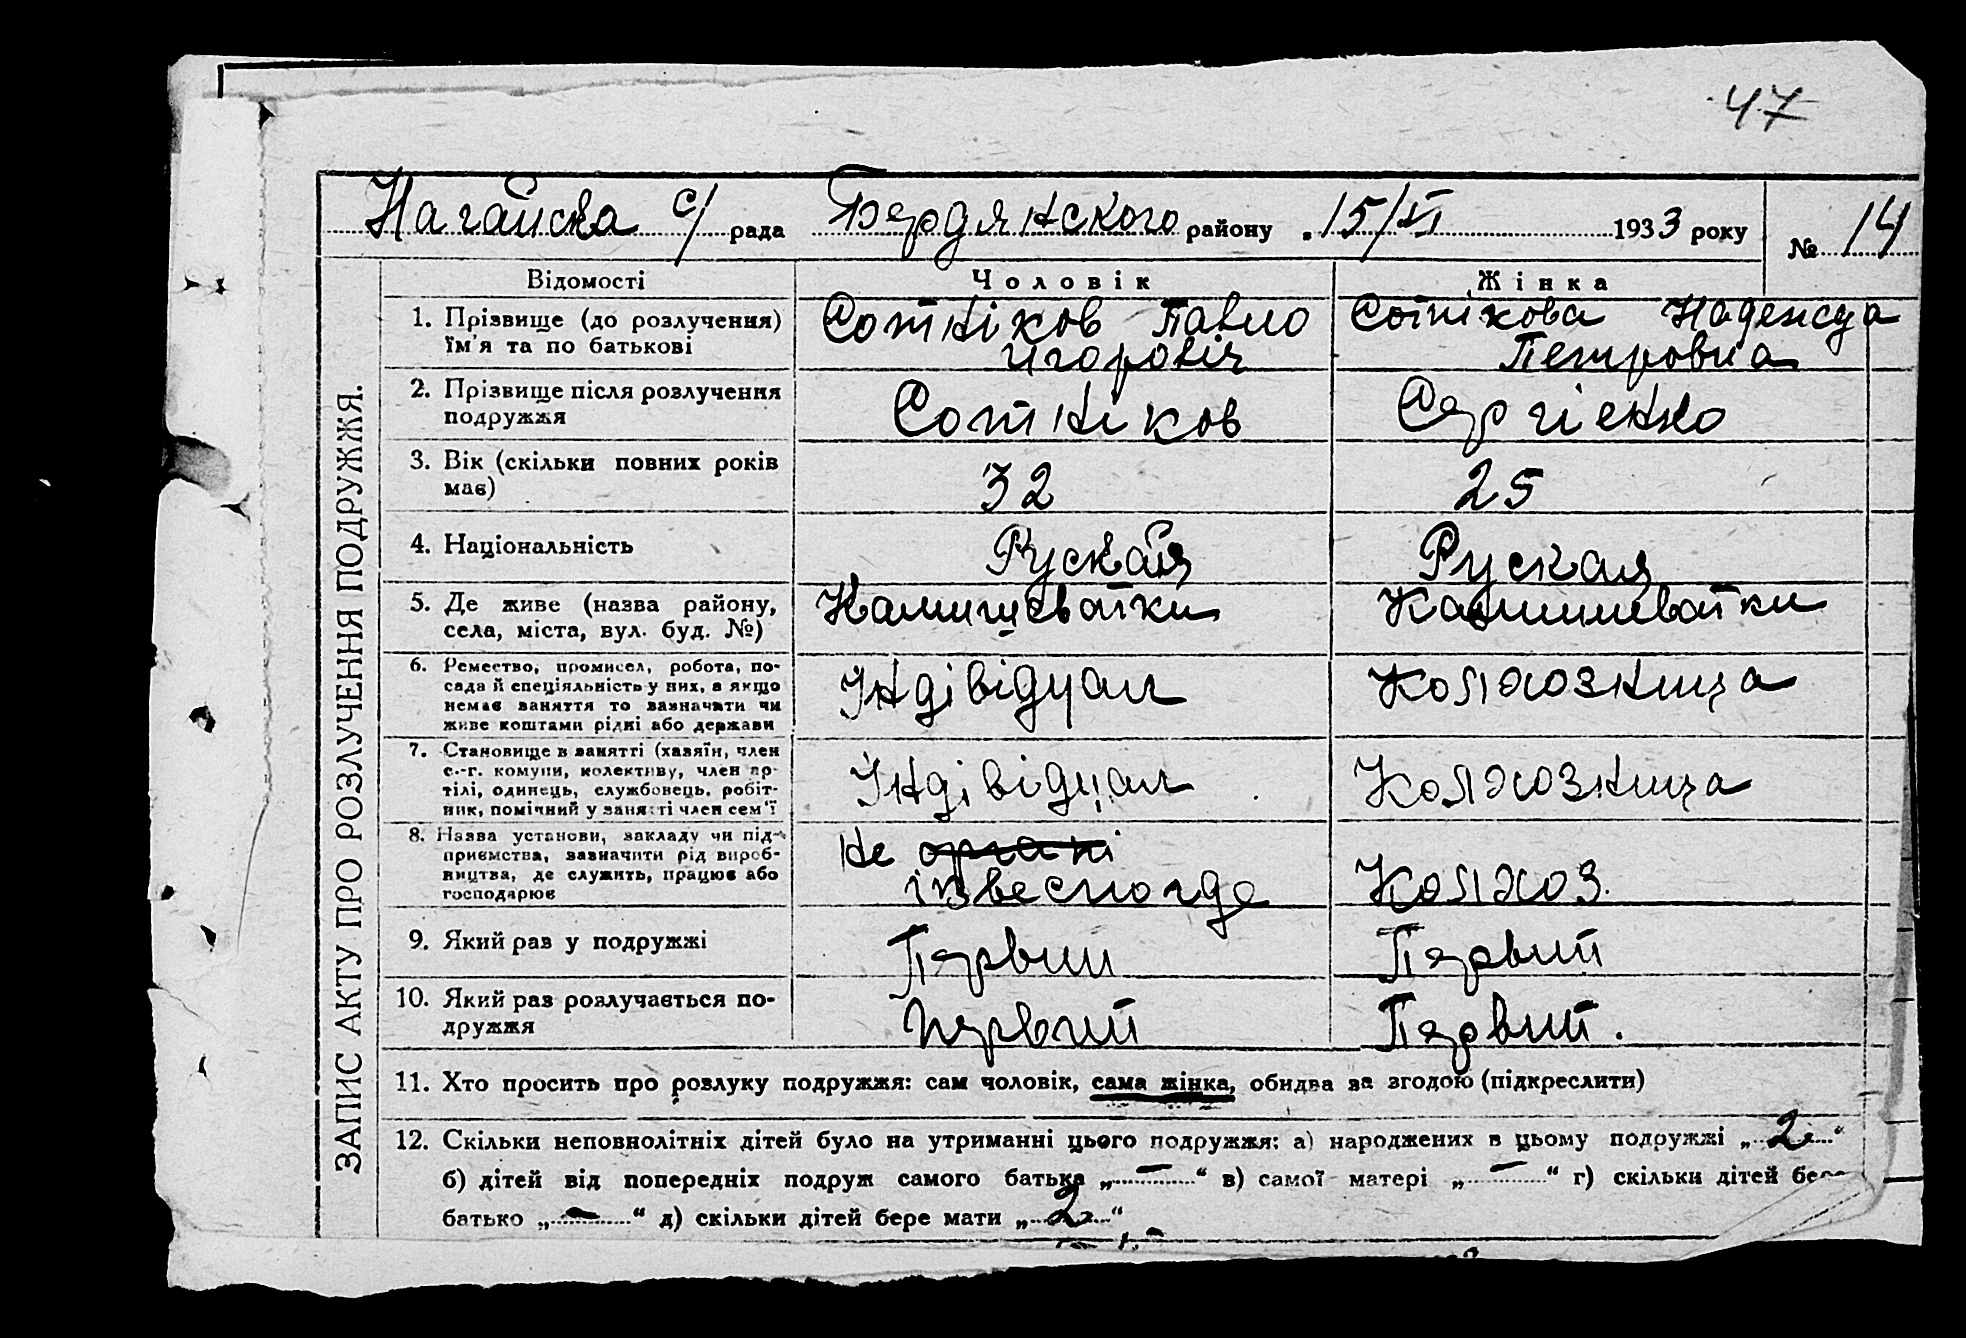 47
Нагайска с/ рада Бердянского району 15/VI 1933 року № 14
ЗАПИС АКТУ ПРО РОЗЛУЧЕННЯ ПОДРУЖЖЯ.
Відомості Чоловік Жінка
1. Прізвище (до розлучення) їм'я та по батькові
Сотніков Павло
Игоровіч
Сотнікова Надежда
Петровна
2. Прізвище після розлучення
подружжя
Сотніков
Сергієнко
3. Вік (скільки повних років
має)
32
25
4. Національність
Руская
Руская
5. Де живе (назва району,
села, міста, вул. буд. №)
Камишеватки
Камишеватки
6. Ремество, промисел, робота, по-
сада й спеціяльність у них, а якщо
немає заняття то зазначити чи
живе коштами рідні або держави
Індівідуал
Колхозница
7. Становище в занятті (хазяїн, член
с.-г. комуни, колективу, член ар-
тілі, одинець, службовець, робіт-
ник, помічний у занятті член сем'ї
Індівідуал
Колхозница
8. Назва установи, закладу чи під-
приємства, зазначити рід вироб-
ництва, де служить, працює або
господарює
Не
ізвесно где
Колхоз.
9. Який раз у подружжі
Первий
Первий
10. Який раз розлучається по-
дружжя
Первий
Первий.
11. Хто просить про розлуку подружжя: сам чоловік, сама жінка, обидва за згодою (підкреслити)
12. Скільки неповнолітніх дітей було на утриманні цього подружжя: а) народжених в цьому подружжі „ 2 “
б) дітей від попередніх подруж самого батька „ — “ в) самої матері „ — “ г) скільки дітей бере
батько „ — “ д) скільки дітей бере мати „ 2 “